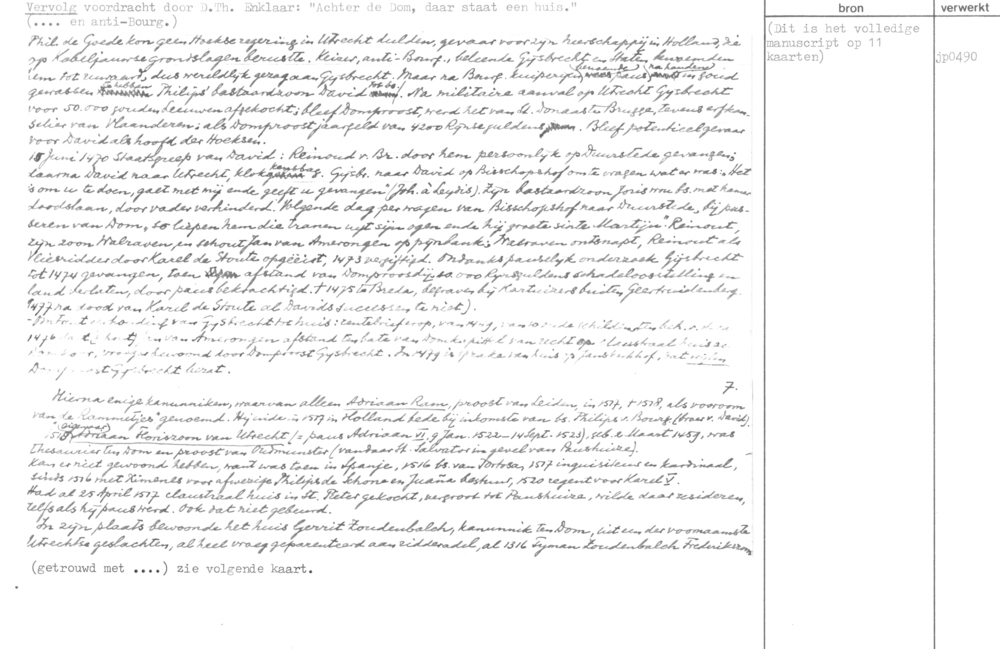 Vervolg voordracht door D.Th. Enklaar: "Achter de Dom, daar staat een huis."
(.... en anti-Bourg.)
bron
verwerkt
(Dit is het volledige
manuscript op 11
kaarten)
jp0490
Phil. de Goede kon geen Hoekse regering in Utrecht dulden, gevaar voor zijn heerschappij in Holland, die
op Kabeljauwse grondslagen berustte. Keizer, anti-Bourg., beleende Gijsbrecht en Staten
hem tot ruwaard, dus wereldlijk gezag aan Gijsbrecht. Maar na Bourg. kuiperijen paus
benoemde na handen in goud
gewassen te hebben Philips' bastaardzoon David tot bs. Na militaire aanval op Utrecht Gijsbrecht
voor 50.000 gouden leeuwen afgekocht; bleef Domproost, werd het van St. Donaas te Brugge, tevens erfkan-
selier van Vlaanderen; als Domproost jaargeld van 4200 Rijnse guldens. Bleef potentieel gevaar
voor David als hoofd der Hoeksen.
Juni 1470 Staatsgreep van David: Reinoud v. Br. door hem persoonlijk op Duurstede gevangen;
daarna David naar Utrecht, klok. Gijsbr. naar David op Bisschopshof om te vragen wat er was: "Het
is om u te doen, gaet met mij ende geeft u gevangen" (Joh. à Leydis). Zijn bastaardzoon Joris wou bs. met hamer
doodslaan, door vader verhinderd. Volgende dag per wagen van Bisschopshof naar Duurstede, bij pas-
seren van Dom, "so liepen hem die tranen uyt sijn ogen ende hij groete sinte Martijn". Reinout,
zijn zoon Walraven, en schout Jan van Amerongen op pijnbank; Walraven ontsnapt, Reinout als
Vliesridder door Karel de Stoute opgeëist, 1473 vergiftigd. Ondanks pauselijk onderzoek Gijsbrecht
tot 1474 gevangen, toen afstand van Domproosdij, 50.000 Rijnse guldens schadeloosstelling en
land verlaten, door paus bekrachtigd. † 1475 te Breda, begraven bij Kartuizers buiten Geertruidenberg.
(1477 na dood van Karel de Stoute al Davids successen te niet).
van Gijsbrecht tot huis: rentebrief erop,
van Amerongen afstand ten bate van Domkapittel van recht op claustraal huis
bewoond door Domproost Gijsbrecht. In 1479 is sprake van huis op Janskerkhof, dat wijlen
Domproost Gijsbrecht bezat.
7.
Hierna enige kanunniken, waarvan alleen Adriaan Ram, proost van Leiden, in 1517, † 1518, als voor oom
van de Rammetjes" genoemd. Hij uide in 1517 in Holland bede bij inkomste van bs. Philips v. Bourg. (broer v. David).
1518 eigenaar Adriaan Floriszoon van Utrecht (= paus Adriaan VI, 9 Jan. 1522 - 14 Sept. 1523), geb. 2 Maart 1459, was
thesaurier ten Dom en proost van Oudmunster (vandaar St. Salvator in gevel van Paushuize).
Kan er niet gewoond hebben, want was toen in Spanje, 1516 bs. van Tortosa, 1517 inquisiteur en kardinaal,
sinds 1516 met Ximenes voor afwezige Philips de Schone en Juana bestuur, 1520 regent voor Karel V.
Had al 25 April 1517 claustraal huis in St. Pieter gekocht, vergroot tot Paushuize, wilde daar resideren,
zelfs als hij paus werd. Ook dat niet gebeurd.
In zijn plaats bewoonde het huis Gerrit Zoudenbalch, kanunnik ten Dom, uit een der voornaamste
Utrechtse geslachten, al heel vroeg geparenteerd aan ridderadel, al 1316 Tyman Zoudenbalch Frederikszoon
(getrouwd met ....) zie volgende kaart.